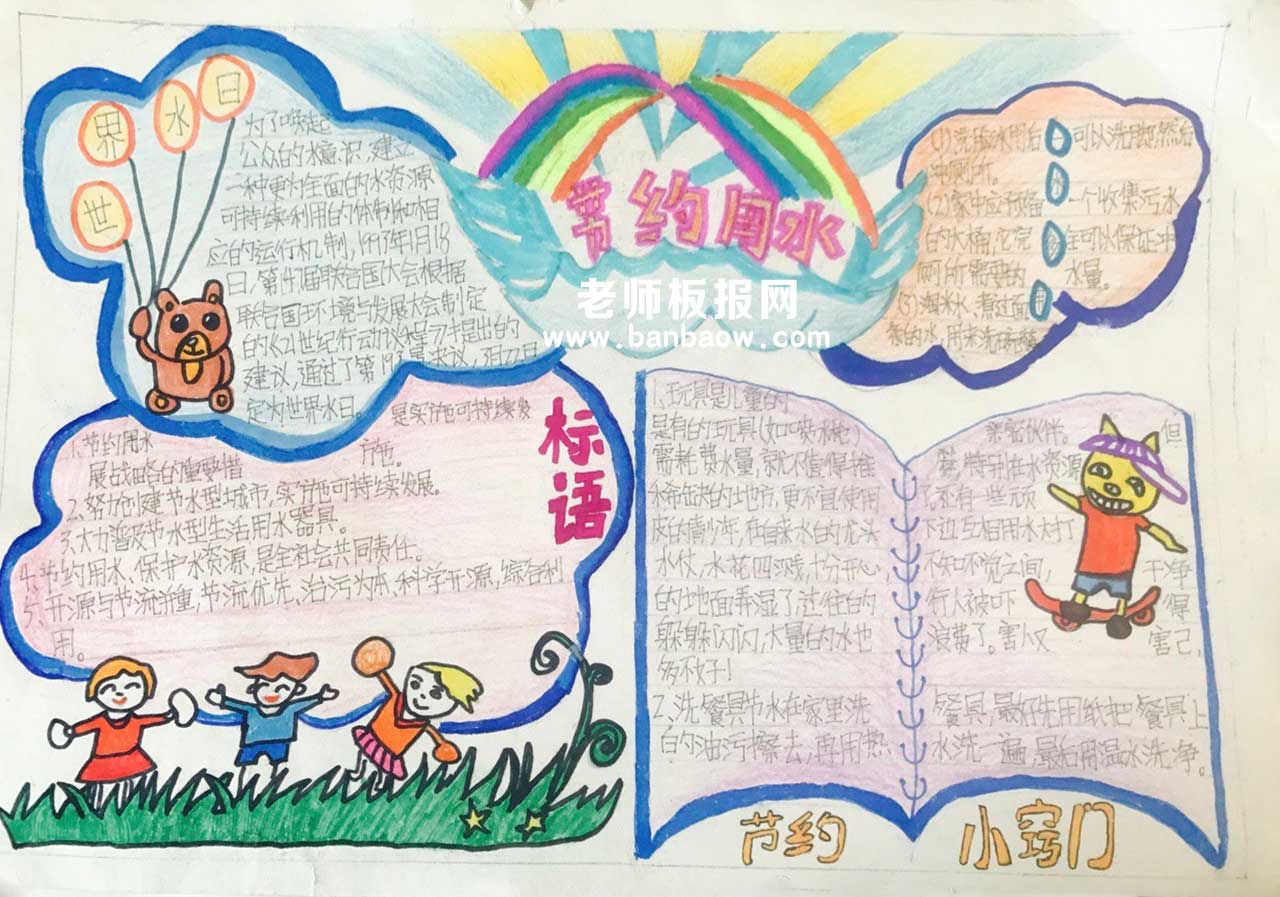 世界水日
为了唤起
公众的水意识，建立
一种更为全面的水资源
可持续利用的体制和相
应的运行机制，1993年1月18
日，第47届联合国大会根据
联合国环境与发展大会制定
的《21世纪行动议程》中提出的
建议，通过了第193号决议，
定为世界水日。
节约用水
老师板报网
www.banbaow.com
(1)洗脸水用后可以洗脚，然后
冲厕所。
(2)家中应预备一个收集污水
的水桶，它完全可以保证冲
厕所需要的水量。
(3)淘米水、煮过面
条的水，用来洗碗筷
标语
1.节约用水是实施可持续发
展战略的重要措施。
2.努力创建节水型城市，实施可持续发展。
3.大力普及节水型生活用水器具。
4.节约用水、保护水资源，是全社会共同责任。
5.开源与节流并重，节流优先、治污为本、科学开源，综合利
用。
1.玩具是儿童的亲密伙伴。但
是有的玩具(如喷水枪)
需耗费水量，就不值得推
水命征水的地方，更不宜使用。还有一些
皮的青少年，在自来水的龙头下边互相用水对打
水仗，水花四溅，十分开心，不知不觉之间，干净
的地面弄湿了，过往的行人被吓得
躲躲闪闪，大量的水也浪费了。害人又害己，
多不好！
2、洗餐具节水在家里洗餐具，最好先用纸把餐具上
的油污擦去，再用热水洗一遍，最后用温水洗净。
节约 小窍门